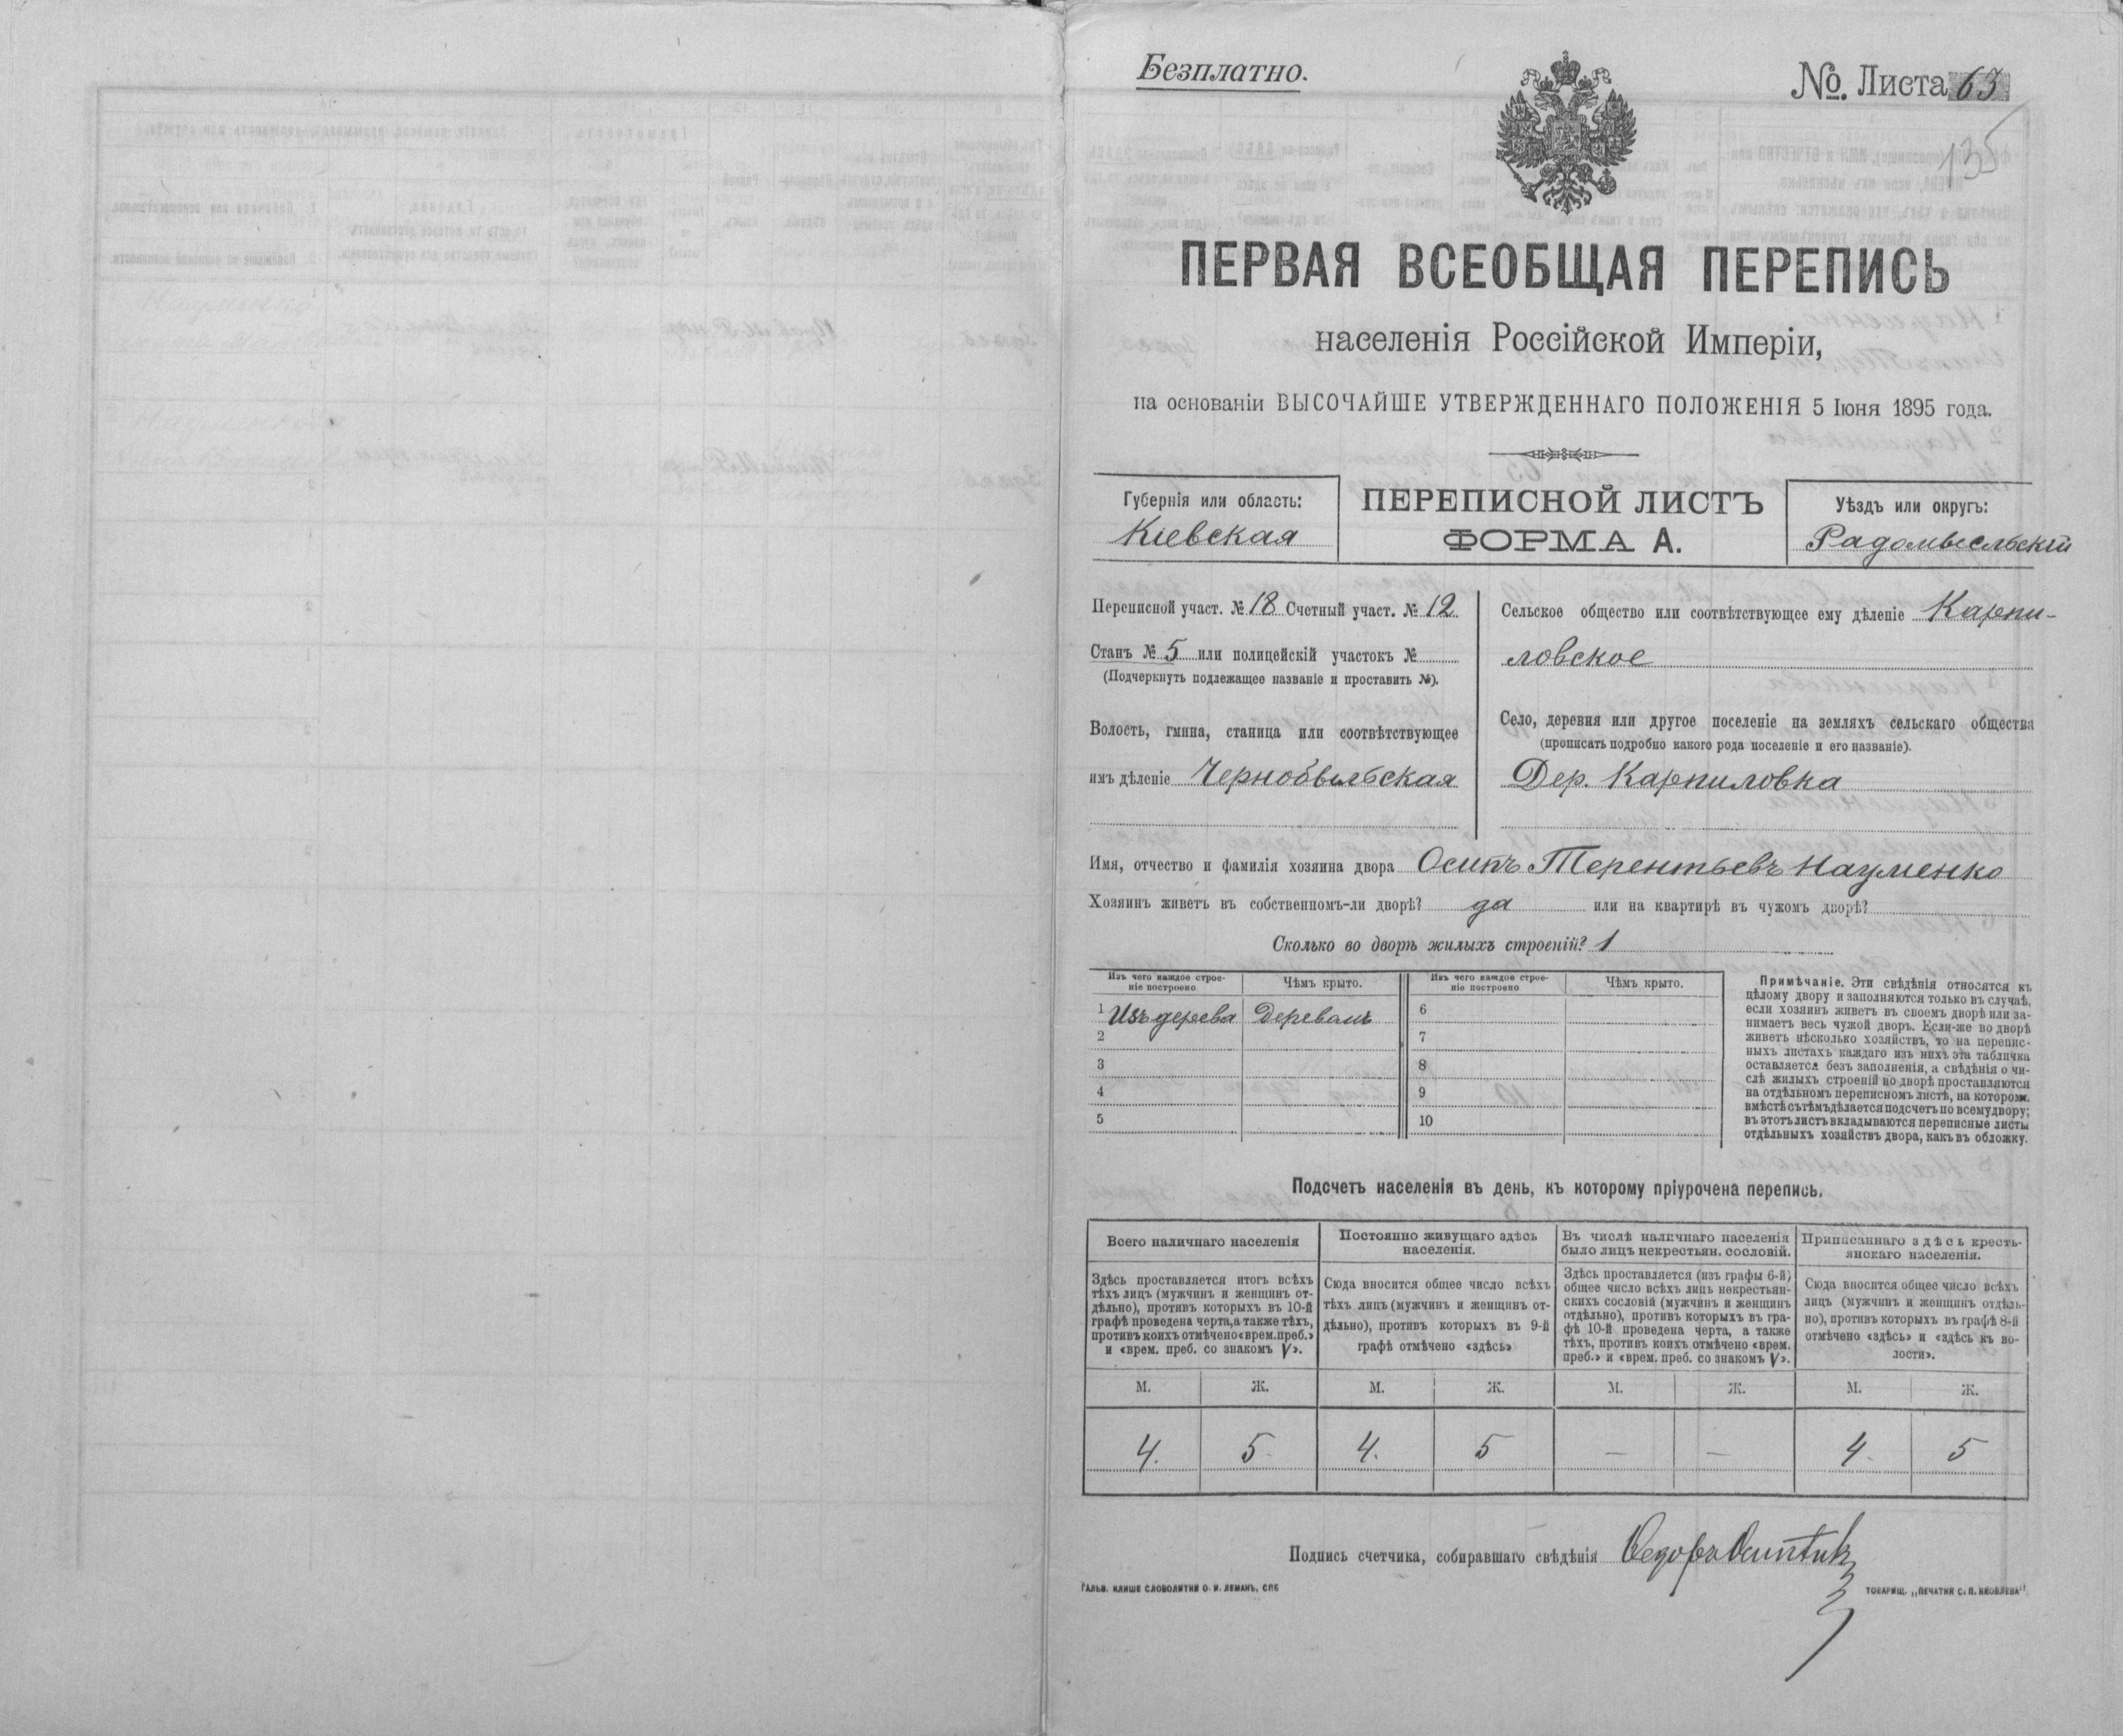 Безплатно.
№. Листа 63
135
ПЕРВАЯ ВСЕОБЩАЯ ПЕРЕПИСЬ
населенія Россійской Имперіи,
на основаніи ВЫСОЧАЙШЕ УТВЕРЖДЕННАГО ПОЛОЖЕНІЯ 5 Іюня 1895 года.
Губернія или область:
Кіевская
ПЕРЕПИСНОЙ ЛИСТЪ
ФОРМА А.
Уѣздъ или округъ:
Радомысльскій
Переписной участ. № 18 Счетный участ. № 12
Станъ № 5 или полицейскій участокъ №
(Подчеркнуть подлежащее названіе и проставить №).
Волость, гмина, станица или соотвѣтствующее
имъ дѣленіе Чернобыльская
Сельское общество или соотвѣтствующее ему дѣленіе Карпи-
ловское
Село, деревня или другое поселеніе на земляхъ сельскаго общества
(прописать подробно какого рода поселеніе и его названіе).
Дер. Карпиловка
Имя, отчество и фамилія хозяина двора Осипъ Терентьевъ Науменко
Хозяинъ живетъ въ собственномъ-ли дворѣ? да или на квартирѣ въ чужомъ дворѣ?
Сколько во дворѣ жилыхъ строеній? 1
Изъ чего каждое строе-
ніе построено
Чѣмъ крыто.
Изъ чего каждое строе-
ніе построено
Чѣмъ крыто.
1 Изъ дерева Деревомъ 6
2 7
3 8
4 9
5 10
Примѣчаніе. Эти свѣдѣнія относятся къ
цѣлому двору и заполняются только въ случаѣ,
если хозяинъ живетъ въ своемъ дворѣ или за-
нимаетъ весь чужой дворъ. Если-же во дворѣ
живетъ нѣсколько хозяйствъ, то на перепис-
ныхъ листахъ каждаго изъ нихъ эта табличка
оставляется безъ заполненія, а свѣдѣнія о чи-
слѣ жилыхъ строеній во дворѣ проставляются
на отдѣльномъ переписномъ листѣ, на которомъ
вмѣстѣ съ тѣмъ дѣлается подсчетъ по всему двору;
въ этотъ листъ вкладываются переписные листы
отдѣльныхъ хозяйствъ двора, какъ въ обложку.
Подсчетъ населенія въ день, къ которому пріурочена перепись.
Всего наличнаго населенія
Здѣсь проставляется итогъ всѣхъ
тѣхъ лицъ (мужчинъ и женщинъ от-
дѣльно), противъ которыхъ въ 10-й
графѣ проведена черта, а также тѣхъ,
противъ коихъ отмѣчено «врем. преб.»
и «врем. преб. со знакомъ V».
Постоянно живущаго здѣсь
населенія.
Сюда вносится общее число всѣхъ
тѣхъ лицъ (мужчинъ и женщинъ от-
дѣльно), противъ которыхъ въ 9-й
графѣ отмѣчено «здѣсь»
Въ числѣ наличнаго населенія
было лицъ некрестьян. сословій.
Здѣсь проставляется (изъ графы 6-й)
общее число всѣхъ лицъ некрестьян-
скихъ сословій (мужчинъ и женщинъ
отдѣльно), противъ которыхъ въ гра-
фѣ 10-й проведена черта, а также
тѣхъ, противъ коихъ отмѣчено «врем.
преб.» и «врем. преб. со знакомъ V».
Приписаннаго здѣсь кресть-
янскаго населенія.
Сюда вносится общее число всѣхъ
лицъ (мужчинъ и женщинъ отдѣль-
но), противъ которыхъ въ графѣ 8-й
отмѣчено «здѣсь» и «здѣсь къ во-
лости».
М. Ж. М. Ж. М. Ж. М. Ж.
4. 5. 4. 5 — — 4. 5
Подпись счетчика, собиравшаго свѣдѣнія Ѳедоръ
ГАЛЬВ. КЛИШЕ СЛОВОЛИТНИ О. И. ЛЕМАНЪ, СПБ
ТОВАРИЩ. „ПЕЧАТНЯ С. П. ЯКОВЛЕВА".